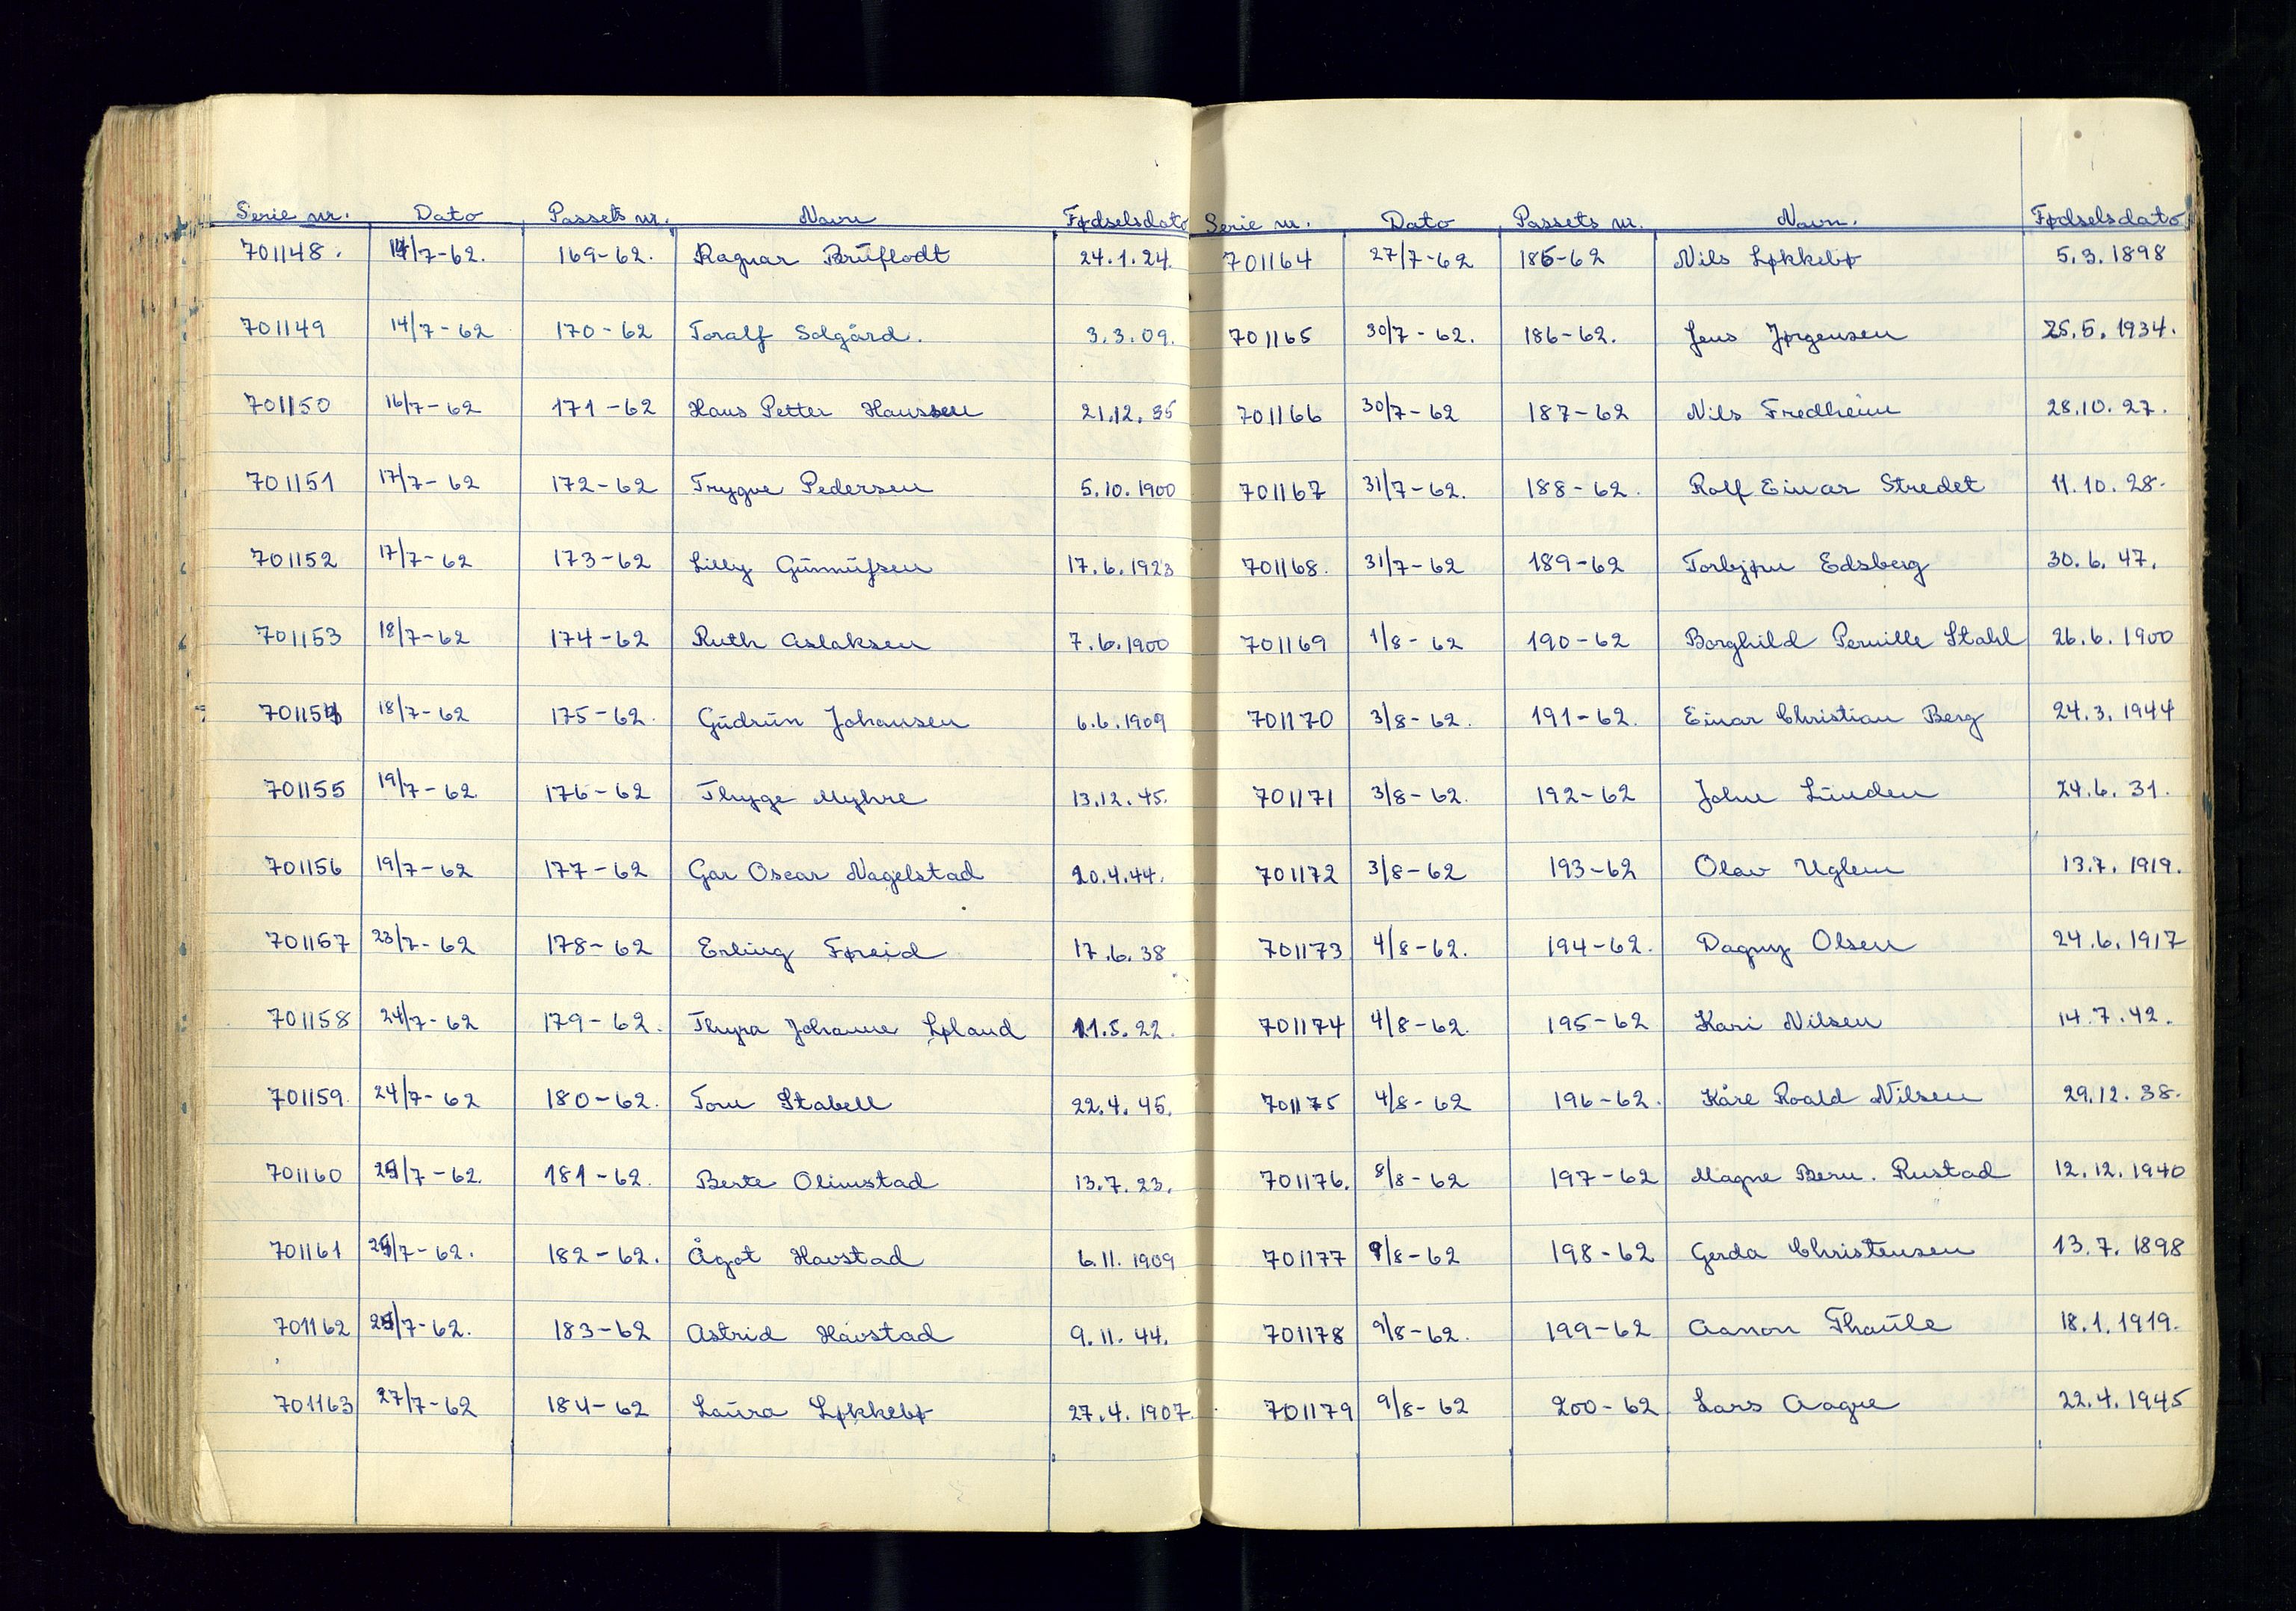 Serie nr. Dato Passets nr. Navn Fødselsdato
701148. 14/7-62. 169-62. Ragnar Bruflodt 24.1.24.
701149 14/7-62 170-62 Toralf Solgård. 3.3.09.
701150 16/7-62 171-62 Hans Petter Hanssen 21.12.35
701151 17/7-62 172-62 Trygve Pedersen 5.10.1900
701152 17/7-62 173-62 Lilly Gunnufsen 17.6.1923
701153 18/7-62 174-62 Ruth Aslaksen 7.6.1900
701154 18/7-62 175-62. Gudrun Johansen 6.6.1909
701155 19/7-62 176-62 Thyge Myhre 13.12.45.
701156 19/7-62 177-62 Gar Oscar Nagelstad 20.4.44.
701157 23/7-62 178-62 Erling Frøeid 17.6.38
701158 24/7-62 179-62. Thyra Johanne Løland 11.5.22.
701159. 24/7-62 180-62. Tom Stabell 22.4.45.
701160 25/7-62. 181-62. Berte Olimstad 13.7.23.
701161 25/7-62. 182-62. Ågot Havstad 6.11.1909
701162 25/7-62. 183-62 Astrid Havstad 9.11.44.
701163 27/7-62 184-62 Laura Løkkebø 27.4.1907.
Serie nr. Dato Passets nr. Navn. Fødselsdato
701164 27/7-62 185-62 Nils Løkkebø 5.3.1898
701165 30/7-62. 186-62. Jens Jørgensen 25.5.1934.
701166 30/7-62 187-62 Nils Fredheim 28.10.27.
701167 31/7-62. 188-62. Rolf Einar Stredet 11.10.28.
701168. 31/7-62 189-62 Torbjørn Edsberg 30.6.47.
701169 1/8-62 190-62 Borghild Pernille Stahl 26.6.1900
701170 3/8-62. 191-62. Einar Christian Berg 24.3.1944
701171 3/8-62. 192-62 John Lunden 24.6.31.
701172 3/8-62 193-62 Olav Uglem 13.7.1919.
701173 4/8-62. 194-62. Dagny Olsen 24.6.1917
701174 4/8-62. 195-62 Kari Nilsen 14.7.42.
701175 4/8-62 196-62. Kåre Roald Nilsen 29.12.38.
701176. 8/8-62 197-62 Magne Bern. Rustad 12.12.1940
701177 9/8-62 198-62 Gerda Christensen 13.7.1898
701178 9/8-62. 199-62 Aanon Thaule 18.1.1919.
701179 9/8-62 200-62 Lars Aagre 22.4.1945